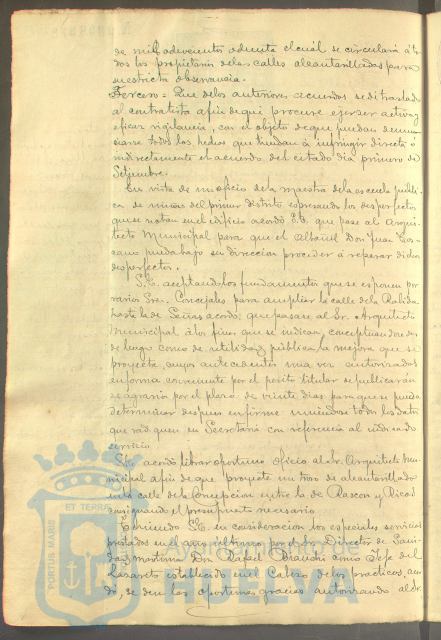 de mil ochocientos ochenta el cual se circulará á to
dos los propietarios de las calles alcantarilladas para
su estricta observancia.
Tercero = Que de los anteriores acuerdos se dé traslado
al contratista afin de que procure ejercer activa y
eficaz vigilancia, con el objeto de que puedan denun
ciarse todos los hechos que tiendan á infringir directa ó
indirectamente el acuerdo del citado dia primero de
Setiembre.
En vista de un oficio de la maestra de la escuela públi
ca de niñas del primer distrito espresando los desperfectos
que se notan en el edificio acordó S.E. que pase al Arqui
tecto Municipal para que el Albañil Don Juan
pueda bajo su direccion proceder á reparar dichos
desperfectos.
S.E. aceptando los fundamentos que se esponen por
varios Sres. Concejales para ampliar la calle de la Rábida
hasta la de Peñas acordó, que pasase al Sr. Arquitecto
Municipal á los fines que se indican, conceptuandose des
de luego como de utilidad pública la mejora que se
proyecta, cuyos antecedentes una vez autorizados
en forma conveniente por el perito titular se publicarán
por el plazo de veinte dias para que se pueda
determinar despues en firme uniendose todos los datos
que radiquen en Secretaría con referencia al indicado
servicio.
S.E. acordó librar oportuno oficio al Sr. Arquitecto Mu
nicipal afin de que proyecte un trozo de alcantarillado
en la calle de la Concepcion entre la de Rascon y Ricos
consignando el presupuesto necesario.
Tomando S.E. en consideracion los especiales servicios
prestados en el año último por el Sr. Director de Sani
dad maritima Don Rafael como Jefe del
Lazareto establecido en el Cabezo de los practicos, acor
dó, se den las oportunas gracias autorizando al Sr.
PORTUS MARIS ET TERRAE
Ayuntamiento de
HUELVA